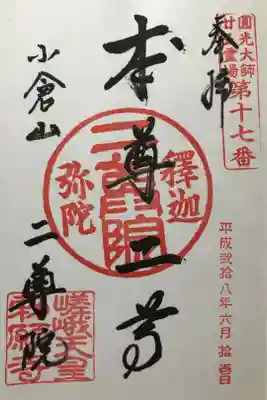 圓光大師
廿五霊場
第十七番
奉拝
平成弐拾八年六月拾壱日
本尊二尊
釋迦
二尊院
弥陀
小倉山
二尊院
嵯峨天皇
御願寺